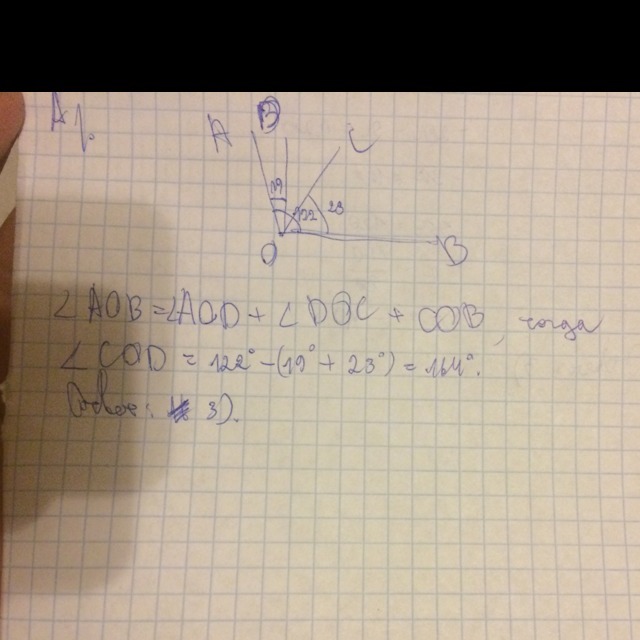 А1.
A D C
19 122 23
O B
∠AOB = ∠AOD + ∠DOC + COB, тогда
∠COD = 122° - (19° + 23°) = 164°.
Ответ: 3).